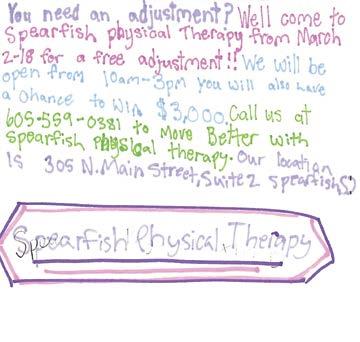 You need an adjustment? Well come to
Spearfish physical Therapy from March
2-18 for a free adjustment!! We will be
open from 10am-3pm you will also have
a chance to win $3,000. Call us at
605-559-0381 to Move Better with
spearfish Physical therapy. Our location
is 305 N. Main Street, Suite 2 spearfish SD
Spearfish Physical Therapy